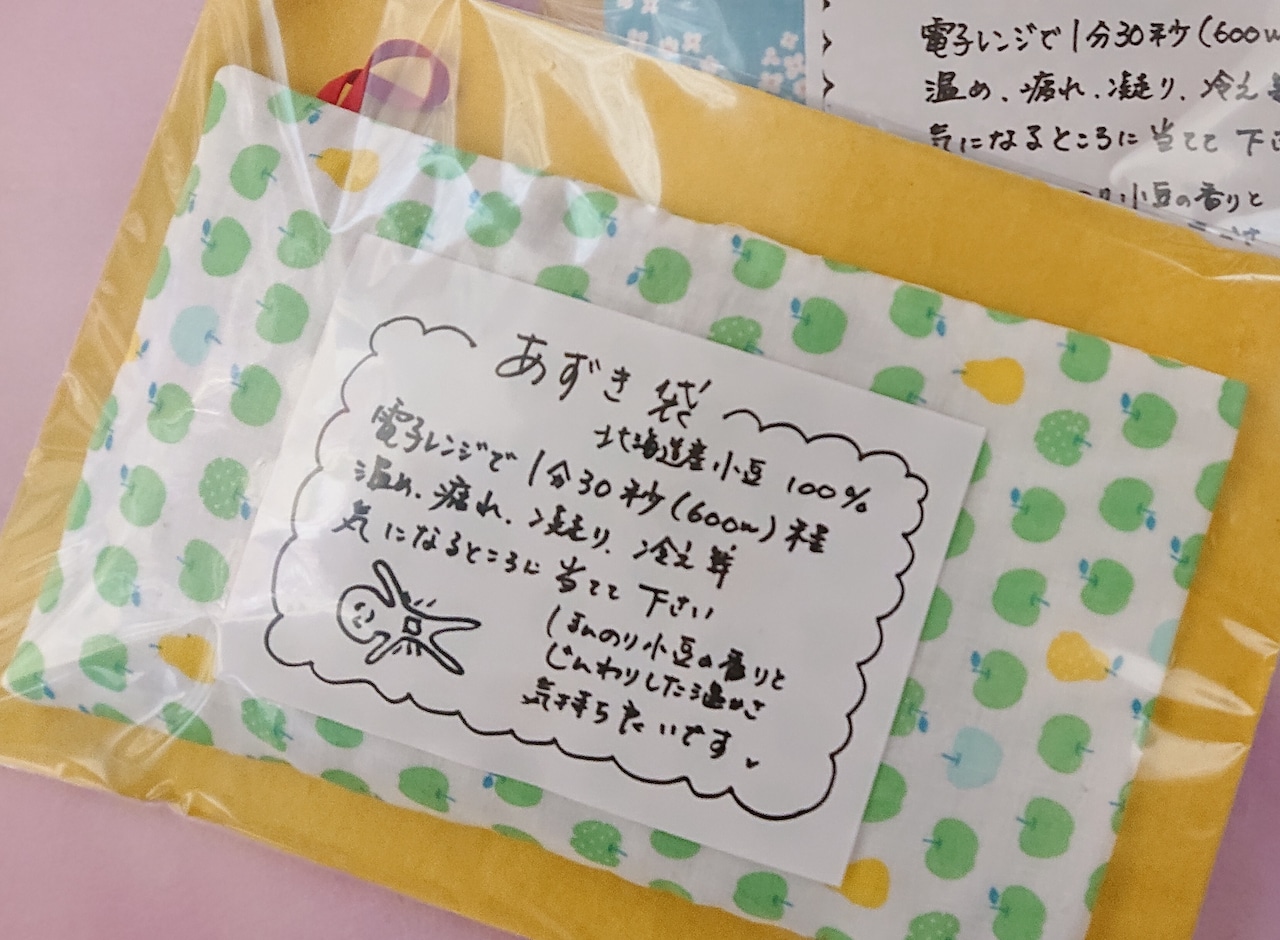 あずき袋
北海道産小豆 100%
電子レンジで1分30秒(600w)程
温め、疲れ、凝り、冷え等
気になるところに当てて下さい
ほんのり小豆の香りと
じんわりした温かさ
気持ち良いです。
電子レンジで1分30秒(600w
温め、疲れ、凝り、冷え等
気になるところに当てて下さ
小豆の香りと